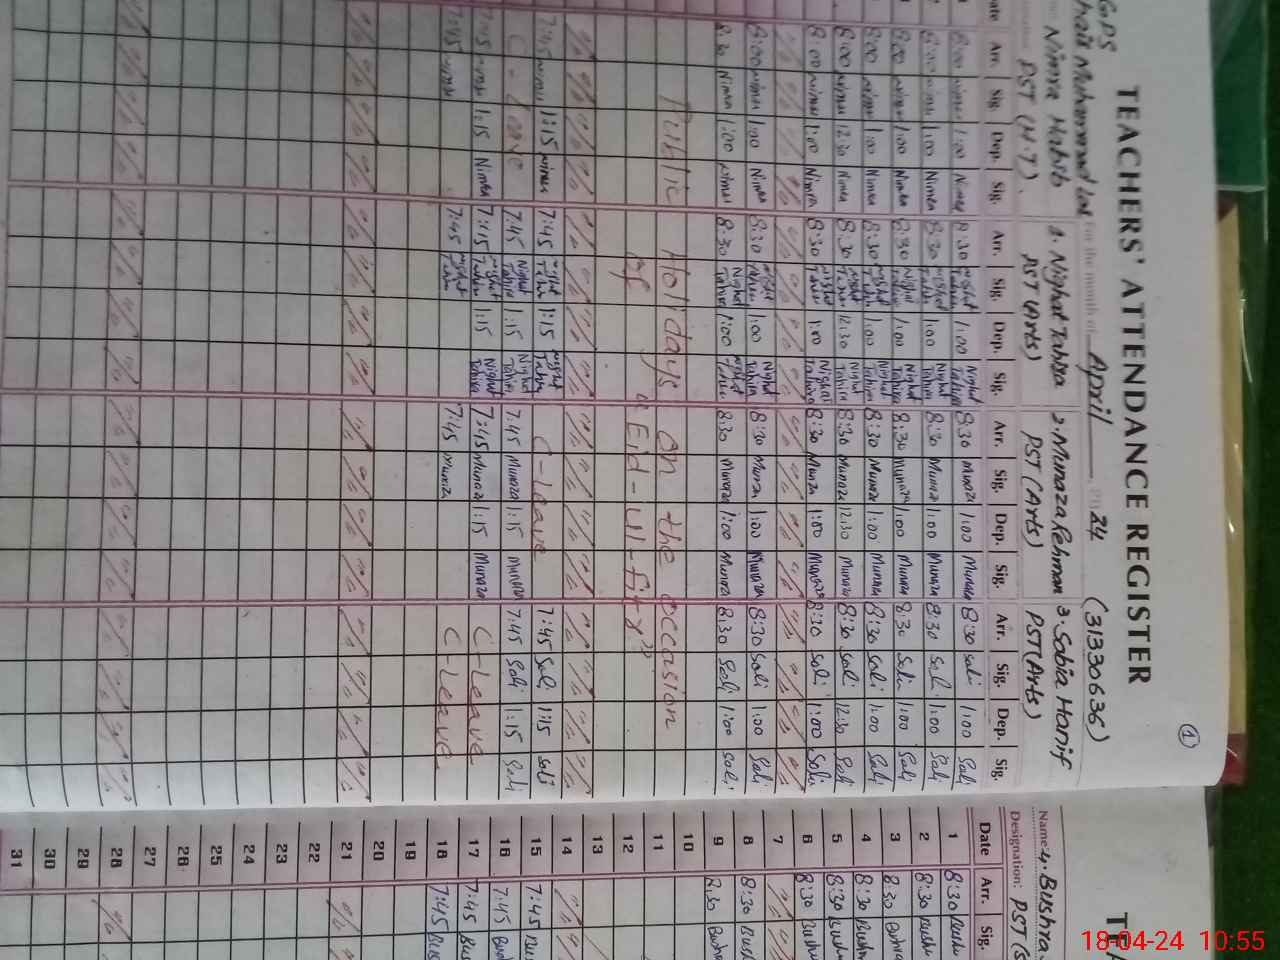 TEACHERS' ATTENDANCE REGISTER
①
GPS
Muhammad For the month of April 2024 (31330636)
Nimra Habib 1. Nighat Tahira 2. Munaza Rehman 3. Sobia Hanif
PST (H.T). PST (Arts) PST (Arts) PST (Arts)
Arr. Sig. Dep. Sig. Arr. Sig. Dep. Sig. Arr. Sig. Dep. Sig. Arr. Sig. Dep. Sig.
8:00 Nimra 1:00 Nimra 8:30 Nighat Tahira 1:00 Nighat Tahira 8:30 Munaza 1:00 Munaza 8:30 Sobi 1:00 Sobi
8:00 Nimra 1:00 Nimra 8:30 Nighat Tahira 1:00 Nighat Tahira 8:30 Munaza 1:00 Munaza 8:30 Sobi 1:00 Sobi
8:00 Nimra 1:00 Nimra 8:30 Nighat Tahira 1:00 Nighat Tahira 8:30 Munaza 1:00 Munaza 8:30 Sobi 1:00 Sobi
8:00 Nimra 1:00 Nimra 8:30 Nighat Tahira 1:00 Nighat Tahira 8:30 Munaza 1:00 Munaza 8:30 Sobi 1:00 Sobi
8:00 Nimra 12:30 Nimra 8:30 Nighat Tahira 12:30 Nighat Tahira 8:30 Munaza 12:30 Munaza 8:30 Sobi 12:30 Sobi
8:00 Nimra 1:00 Nimra 8:30 Nighat Tahira 1:00 Nighat Tahira 8:30 Munaza 1:00 Munaza 8:30 Sobi 1:00 Sobi
8:00 Nimra 1:00 Nimra 8:30 Nighat Tahira 1:00 Nighat Tahira 8:30 Munaza 1:00 Munaza 8:30 Sobi 1:00 Sobi
8:30 Nimra 1:00 Nimra 8:30 Nighat Tahira 1:00 Nighat Tahira 8:30 Munaza 1:00 Munaza 8:30 Sobi 1:00 Sobi
Public Holidays on the occasion
of "Eid-ul-fitr"
7:45 Nimra 1:15 Nimra 7:45 Nighat Tahira 1:15 Nighat Tahira C-Leave 7:45 Sobi 1:15 Sobi
C-Leave 7:45 Nighat Tahira 1:15 Nighat Tahira 7:45 Munaza 1:15 Munaza 7:45 Sobi 1:15 Sobi
7:15 Nimra 1:15 Nimra 7:15 Nighat Tahira 1:15 Nighat Tahira 7:45 Munaza 1:15 Munaza C-Leave
7:45 Nimra 7:45 Nighat Tahira 7:45 Munaza C-Leave
Name: 4. Bushra
Designation: PST
Date Arr. Sig.
1 8:30 Bushra
2 8:30 Bushra
3 8:30 Bushra
4 8:30 Bushra
5 8:30 Bushra
6 8:30 Bushra
7
8 8:30 Bushra
9 8:30 Bushra
10
11
12
13
14
15 7:45 Bushra
16 7:45 Bushra
17 7:45 Bushra
18 7:45 Bushra
19
20
21
22
23
24
25
26
27
28
29
30
31
18-04-24 10:55